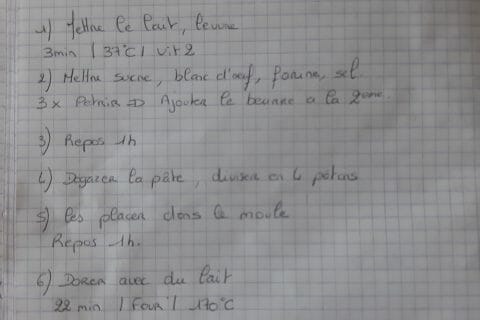 1) Mettre le lait, levure
3min / 37°C / vit 2
2) Mettre sucre, blanc d'oeuf, farine, sel
3 x Petrir => Ajouter le beurre a la 2eme.
3) Repos 1h
4) Degazer la pâte, diviser en 4 pâtons
5) les placer dans le moule
Repos 1h.
6) Dorer avec du lait
22 min / Four / 170°C